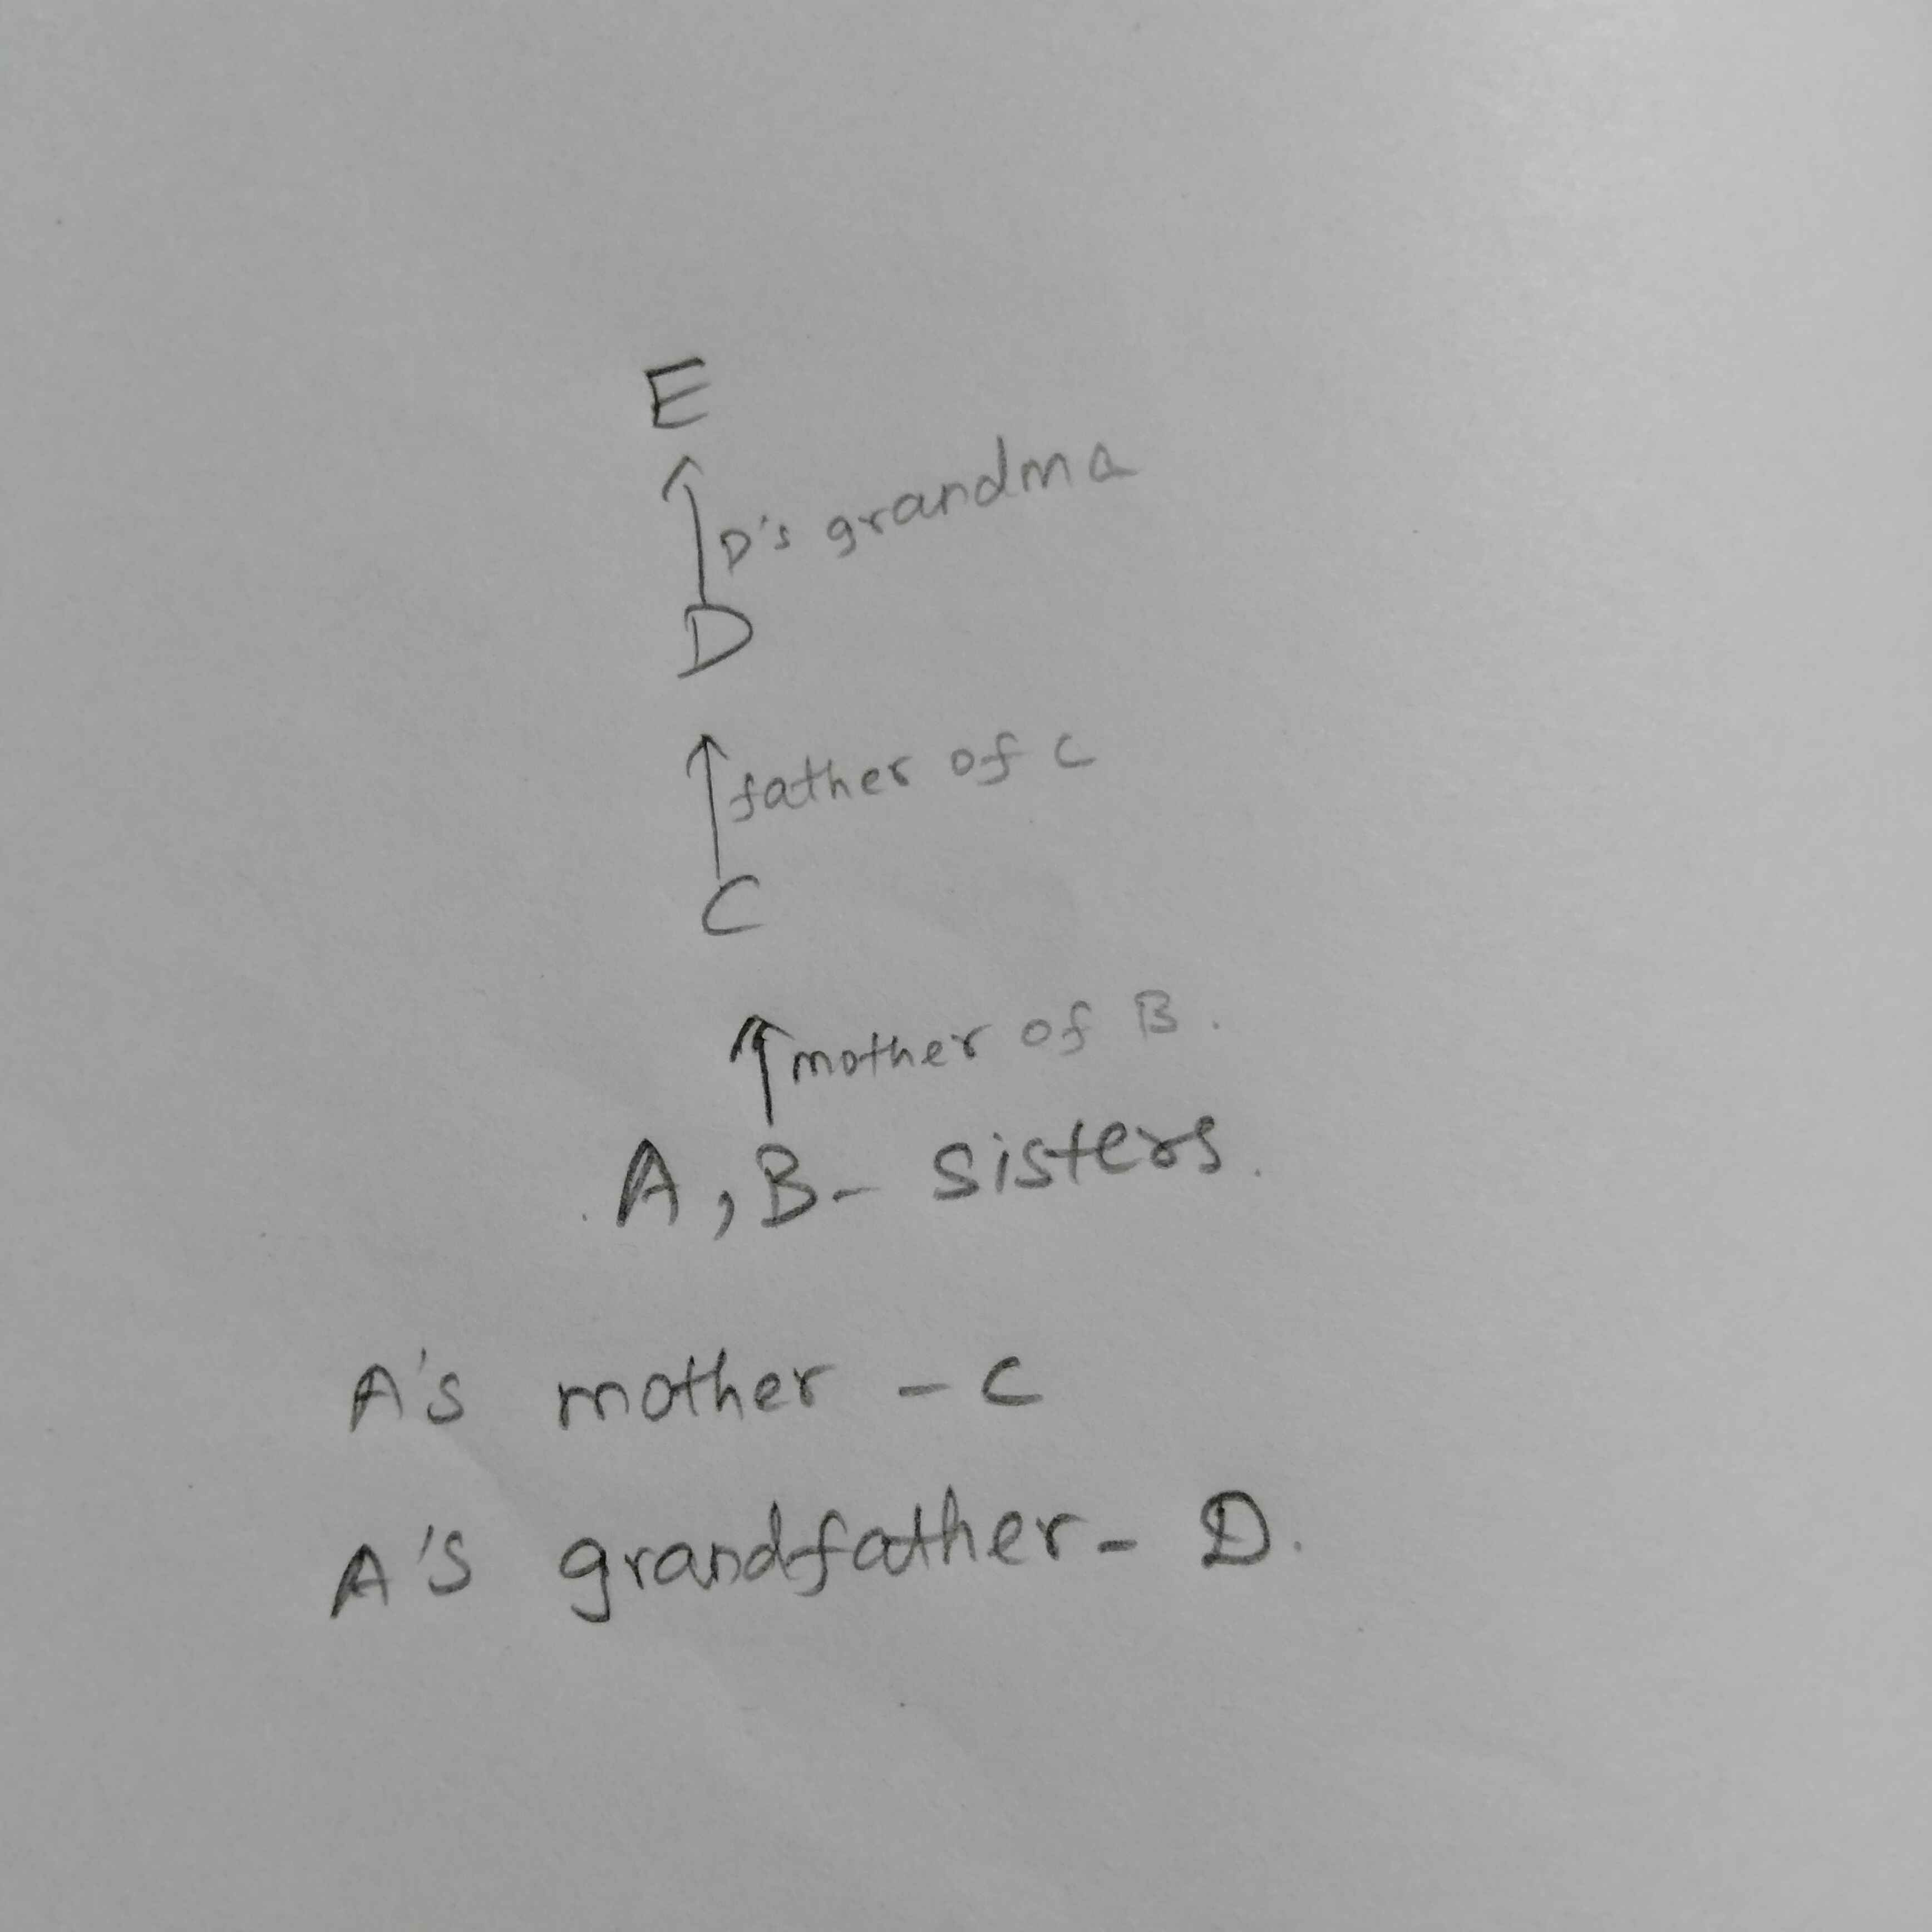 E
D's grandma
D
father of C
C
mother of B.
A, B- sisters.
A's mother - C
A's grandfather - D.